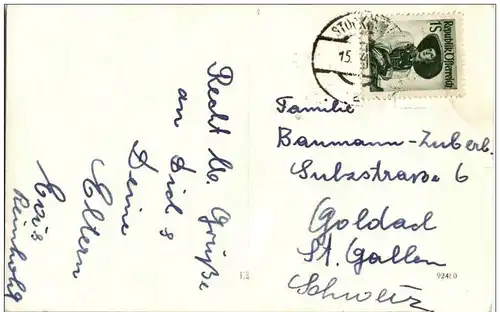 Recht lb. Grüße
an Dich &
Deine
Eltern
Evi &
Reinhold
1 S
Republik Österreich
15.
Familie
Baumann-Zuberb.
Sulzstrasse 6
Goldach
St. Gallen
Schweiz